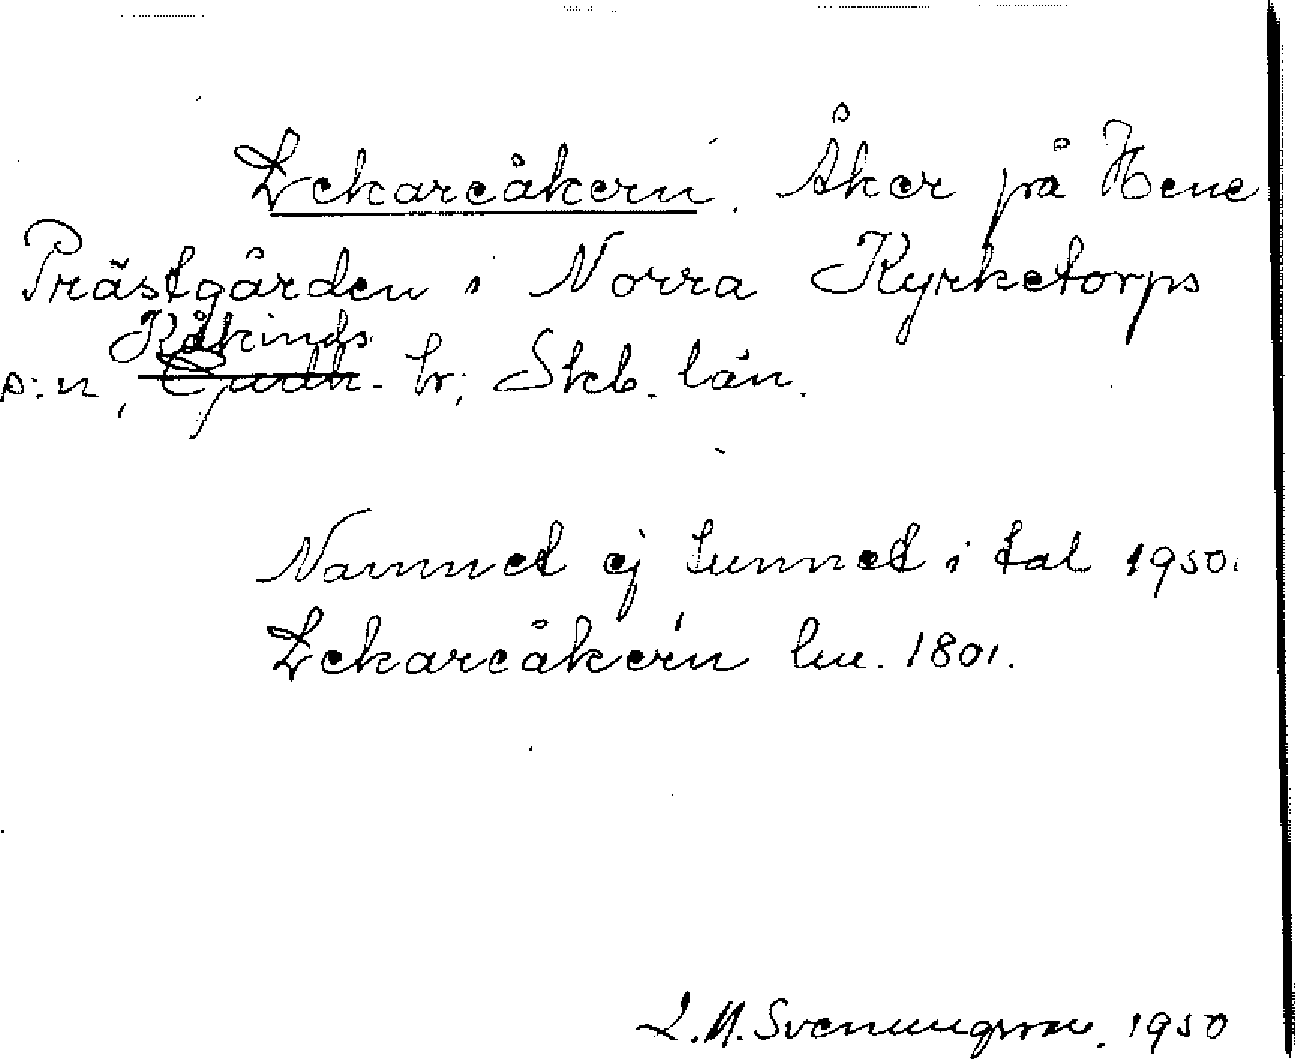 Lekareåkern. Åker på Hene
Prästgården i Norra Kyrketorps
Kåkinds
s:n, hr; Skb. län.
Namnet ej funnet i tal 1950.
Lekareåkern lm. 1801.
L.M. Svenungsson. 1950